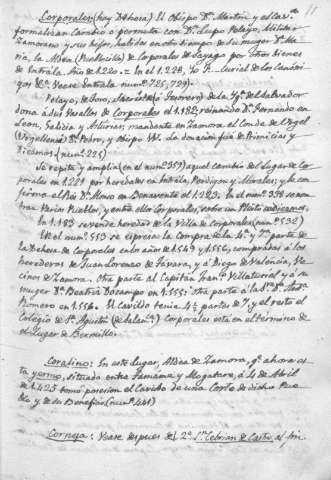 11
Corporales (hoy Dehesa) El Obispo Dn. Martin y el Cav.
formalizan Cambio o permuta con Dn. Lupo Pelayo, Militar
Zamorano y sus hijos, habidos en otro tiempo de su muger Dª Ma-
ria, la Aldea (Pueblecillo) de Corporales de Sayago por otros bienes
de Entrala. Año de 1220. = En el 1228, hº
gos &ª. Vease Entrala numº 725, 729).
Pelayo, de Toro, (Tesorero) de la Ygª del Salvador
dona a sus Vasallos de Corporales el 1182, reinando Dn. Fernando en
Leon, Galicia y Asturias; mandante en Zamora el Conde de Urgel
(Urgellensis) Dn. Pedro, y Obispo W. La donacion fue de Primicias y
Diezmos (numº 225)
Se repite y amplia (en el numº 359) aquel cambio del Lugar de Cor-
porales en 1221 por heredades en Entrala, Perdigon y Morales; y lo con-
firma el Rey Dn. Alonso en Benavente el 1223. En el numº 398
varios Pueblos, y entre ello Corporales, sobre un Pleito
En 1.483 se vende heredad de la Villa de Corporales (numº 532)
En el numº 553 se expresa la Compra de la 4ª y 7ª parte de
la Dehesa de Corporales en los años de 1549 y 1556, compradas á los
herederos de Juan Lorenzo de Favara, y á Diego de Valencia, Ve-
cinos de Zamora. Otra parte al Capitan Franco Villafturiel y a su
muger Dª Beatriz Docampo en 1555; otra parte á la Dª Dn. Andº
Romero en 1556. El Cavildo tenia 4½ partes de 7, y el resto el
Colegio de Sn. Agustin (de Salamca) Corporales está en el termino de
el Lugar de Bermillo.
Coratino: En este lugar, Aldea de Zamora, qe ahora es-
ta yermo, situado entre Tamame y Mogatar, á 4 de Abril
de 1423 tomó posesion el Cavildo de una Corte de dicho Pue-
blo y de su Beneficio (numº 441)
Corneja: Vease despues del 2º Sn. Cebrian de Castro, al fin.